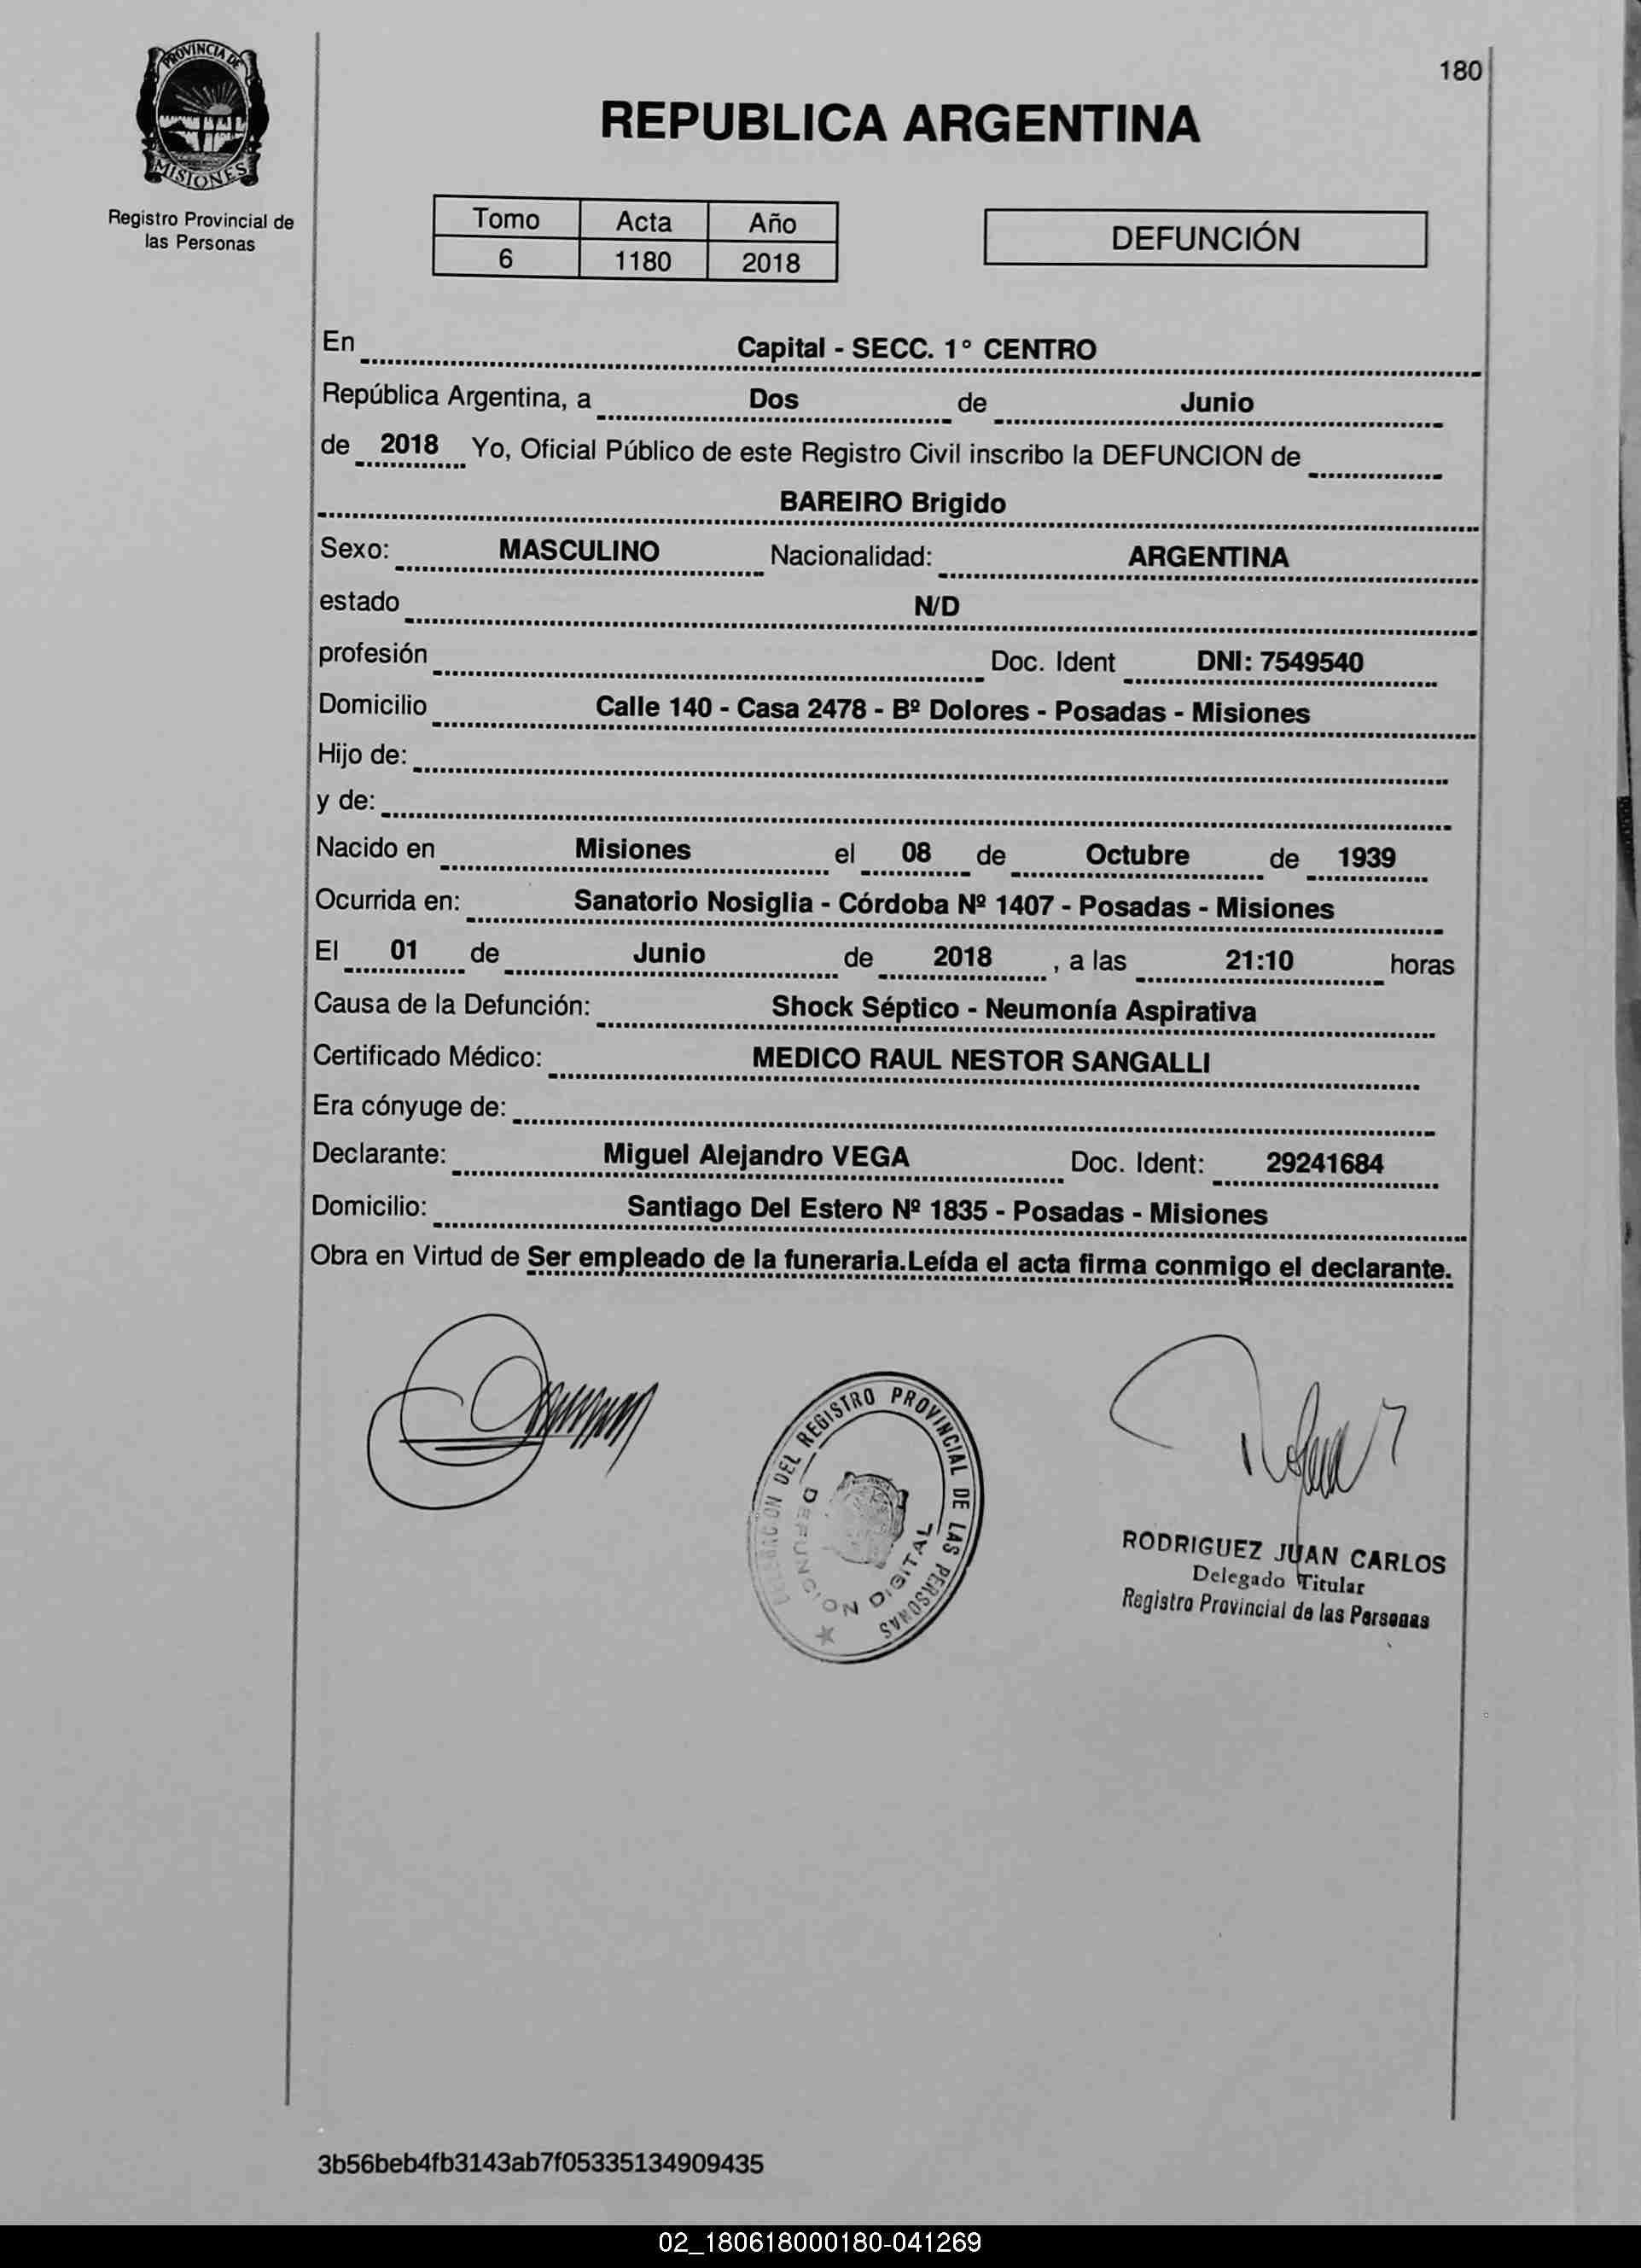 PROVINCIA DE
MISIONES
Registro Provincial de
las Personas
180
REPUBLICA ARGENTINA
Tomo Acta Año
6 1180 2018
DEFUNCIÓN
En Capital - SECC. 1° CENTRO
República Argentina, a Dos de Junio
de 2018 Yo, Oficial Público de este Registro Civil inscribo la DEFUNCION de
BAREIRO Brigido
Sexo: MASCULINO Nacionalidad: ARGENTINA
estado N/D
profesión Doc. Ident DNI: 7549540
Domicilio Calle 140 - Casa 2478 - Bº Dolores - Posadas - Misiones
Hijo de:
y de:
Nacido en Misiones el 08 de Octubre de 1939
Ocurrida en: Sanatorio Nosiglia - Córdoba Nº 1407 - Posadas - Misiones
El 01 de Junio de 2018 , a las 21:10 horas
Causa de la Defunción: Shock Séptico - Neumonía Aspirativa
Certificado Médico: MEDICO RAUL NESTOR SANGALLI
Era cónyuge de:
Declarante: Miguel Alejandro VEGA Doc. Ident: 29241684
Domicilio: Santiago Del Estero Nº 1835 - Posadas - Misiones
Obra en Virtud de Ser empleado de la funeraria.Leída el acta firma conmigo el declarante.
DEL REGISTRO PROVINCIAL DE LAS PERSONAS
DEFUNCION DIGITAL
RODRIGUEZ JUAN CARLOS
Delegado Titular
Registro Provincial de las Personas
3b56beb4fb3143ab7f05335134909435
02_180618000180-041269